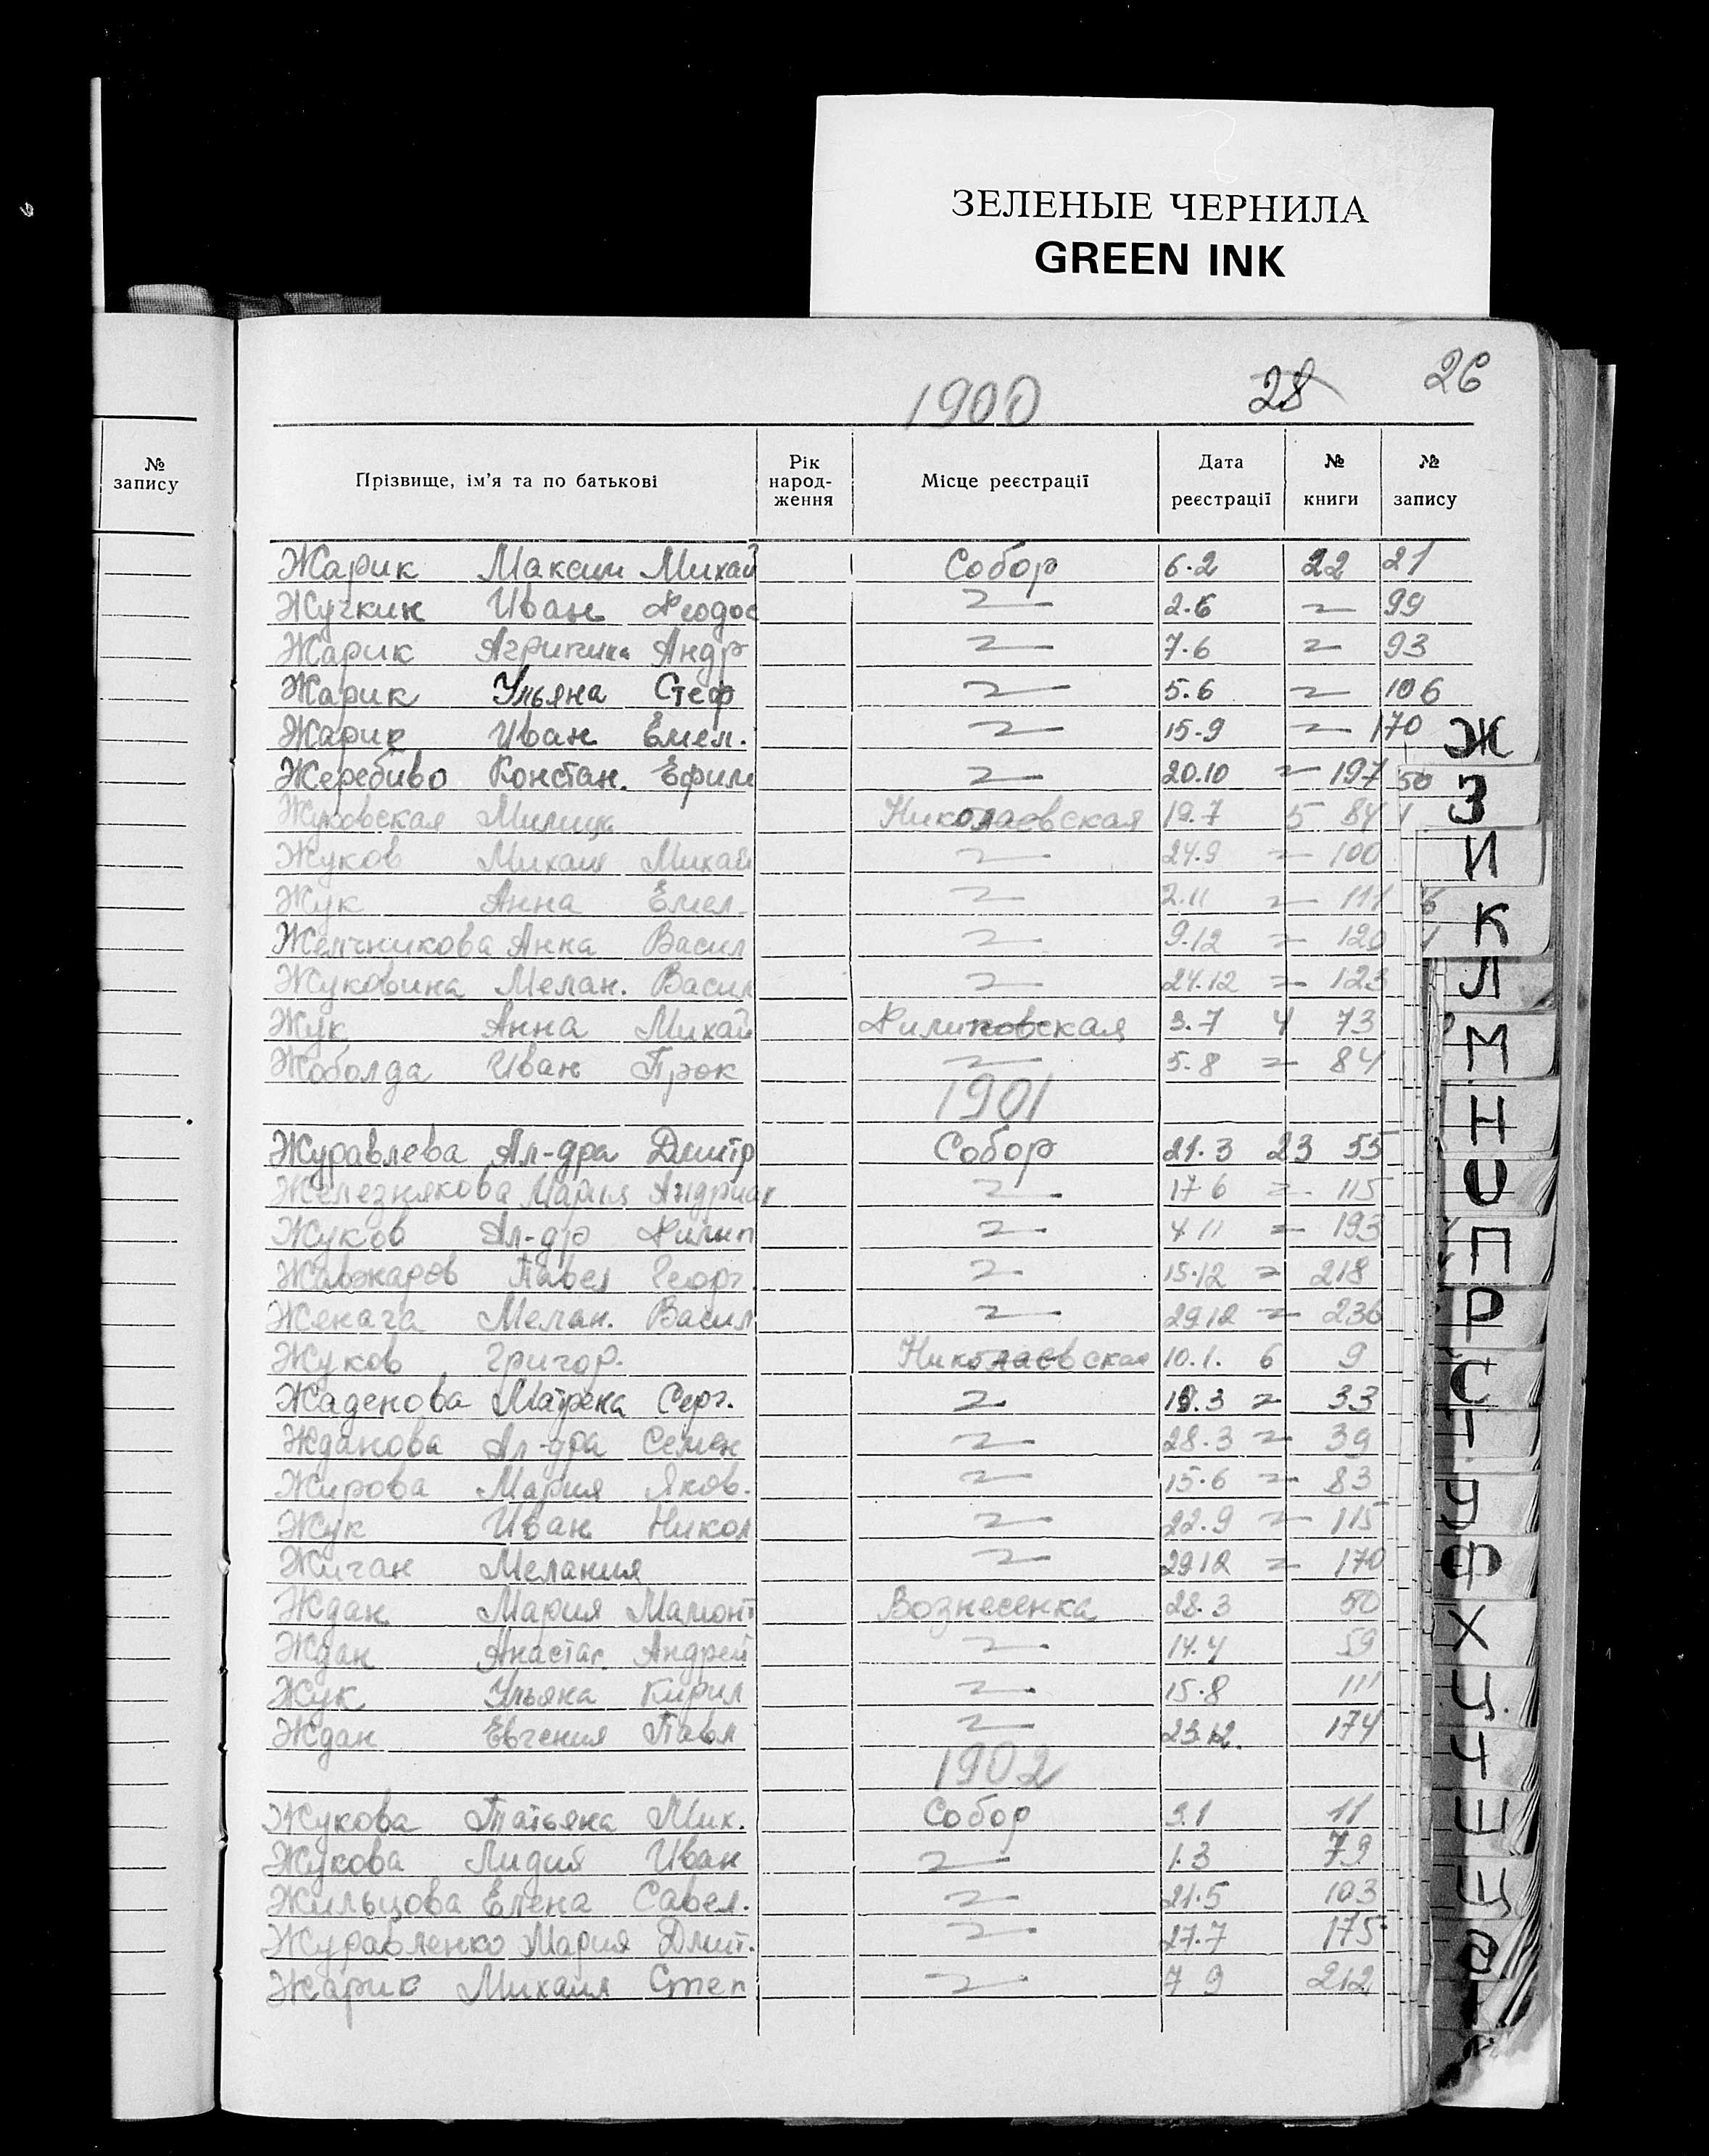 ЗЕЛЕНЫЕ ЧЕРНИЛА
GREEN INK
1900 28 26
№ запису
Прізвище, ім'я та по батькові Рік народ-ження Місце реєстрації Дата реєстрації № книги № запису
Жарик Максим Михай Собор 6.2 22 21
Жучкин Иван Феодос 2.6 99
Жарик Агрипина Андр 7.6 93
Жарик Ульяна Стеф 5.6 106
Жарик Иван Емел. 15.9 170
Жеребиво Констан. Ефим 20.10 197
Жуковская Милица Николаевская 19.7 5 84
Жуков Михаил Михай 24.9 100
Жук Анна Емел. 2.11 111
Анна Васил 9.12 120
Жуковина Мелан. Васил 24.12 123
Жук Анна Михай Филиповская 3.7 4 73
Жоболда Иван Прок 5.8 84
1901
Журавлева Ал-дра Дмитр Собор 21.3 23 55
Железнякова Мария Андриан 17 6 115
Жуков Ал-др Филип 4 11 193
Жавжаров Павел Георг. 15.12 218
Женага Мелан. Васил 29 12 236
Жуков Григор. Николаевская 10.1. 6 9
Жаденова Матрена Серг. 33
Жданова Ал-дра Семен 28.3 39
Жирова Мария Яков. 15.6 83
Жук Иван Никол 22.9 115
Жиган Мелания 29 12 170
Ждан Мария Мамонт Вознесенка 28.3 50
Ждан Анастас. Андрей 14.4 59
Жук Ульяна Кирил 15.8 111
Ждан Евгения Павл 23.12. 174
1902
Жукова Татьяна Мих. Собор 3.1 11
Жукова Лидия Иван 1.3 79
Жильцова Елена Савел. 21.5 103
Журавленко Мария Дмит. 27.7 175
Жарик Михаил Степ 7 9 212
Ж
З
И
К
Л
М
Н
О
П
Р
С
Т
У
Ф
Х
Ц
Ч
Ш
Щ